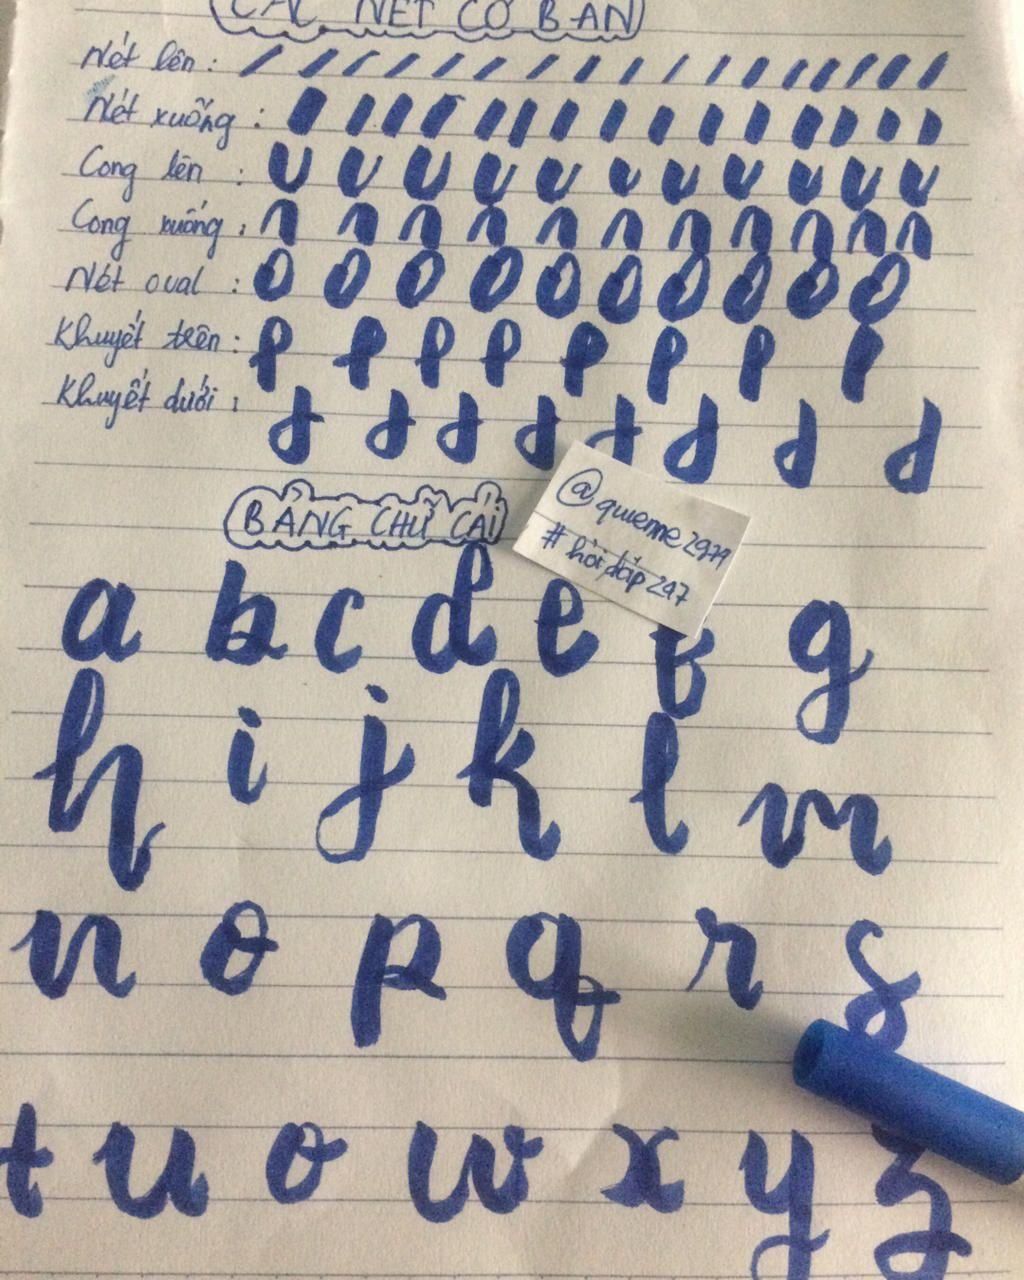 CÁC NÉT CƠ BẢN
Nét lên :
Nét xuống :
Cong lên :
Cong xuống :
Nét oval :
Khuyết trên :
Khuyết dưới :
@quienne2979
#hỏiđáp247
BẢNG CHỮ CÁI
a b c d e f g
h i j k l m
n o p q r s
t u v w x y z